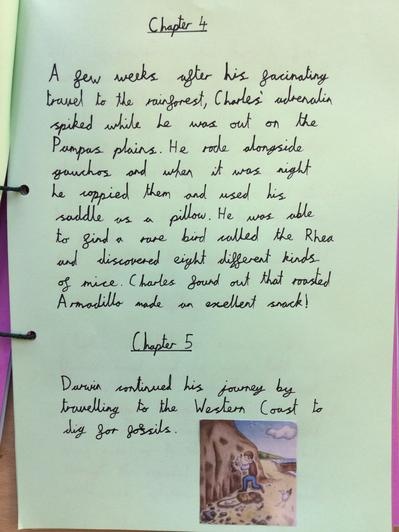 Chapter 4
A few weeks after his facinating
travel to the rainforest, Charles' adrenalin
spiked while he was out on the
Pampas plains. He rode alongside
gauchos and when it was night
he coppied them and used his
saddle as a pillow. He was able
to find a rare bird called the Rhea
and discovered eight different kinds
of mice. Charles found out that roasted
Armadillo made an excellent snack!
Chapter 5
Darwin continued his journey by
travelling to the Western Coast to
dig for fossils.